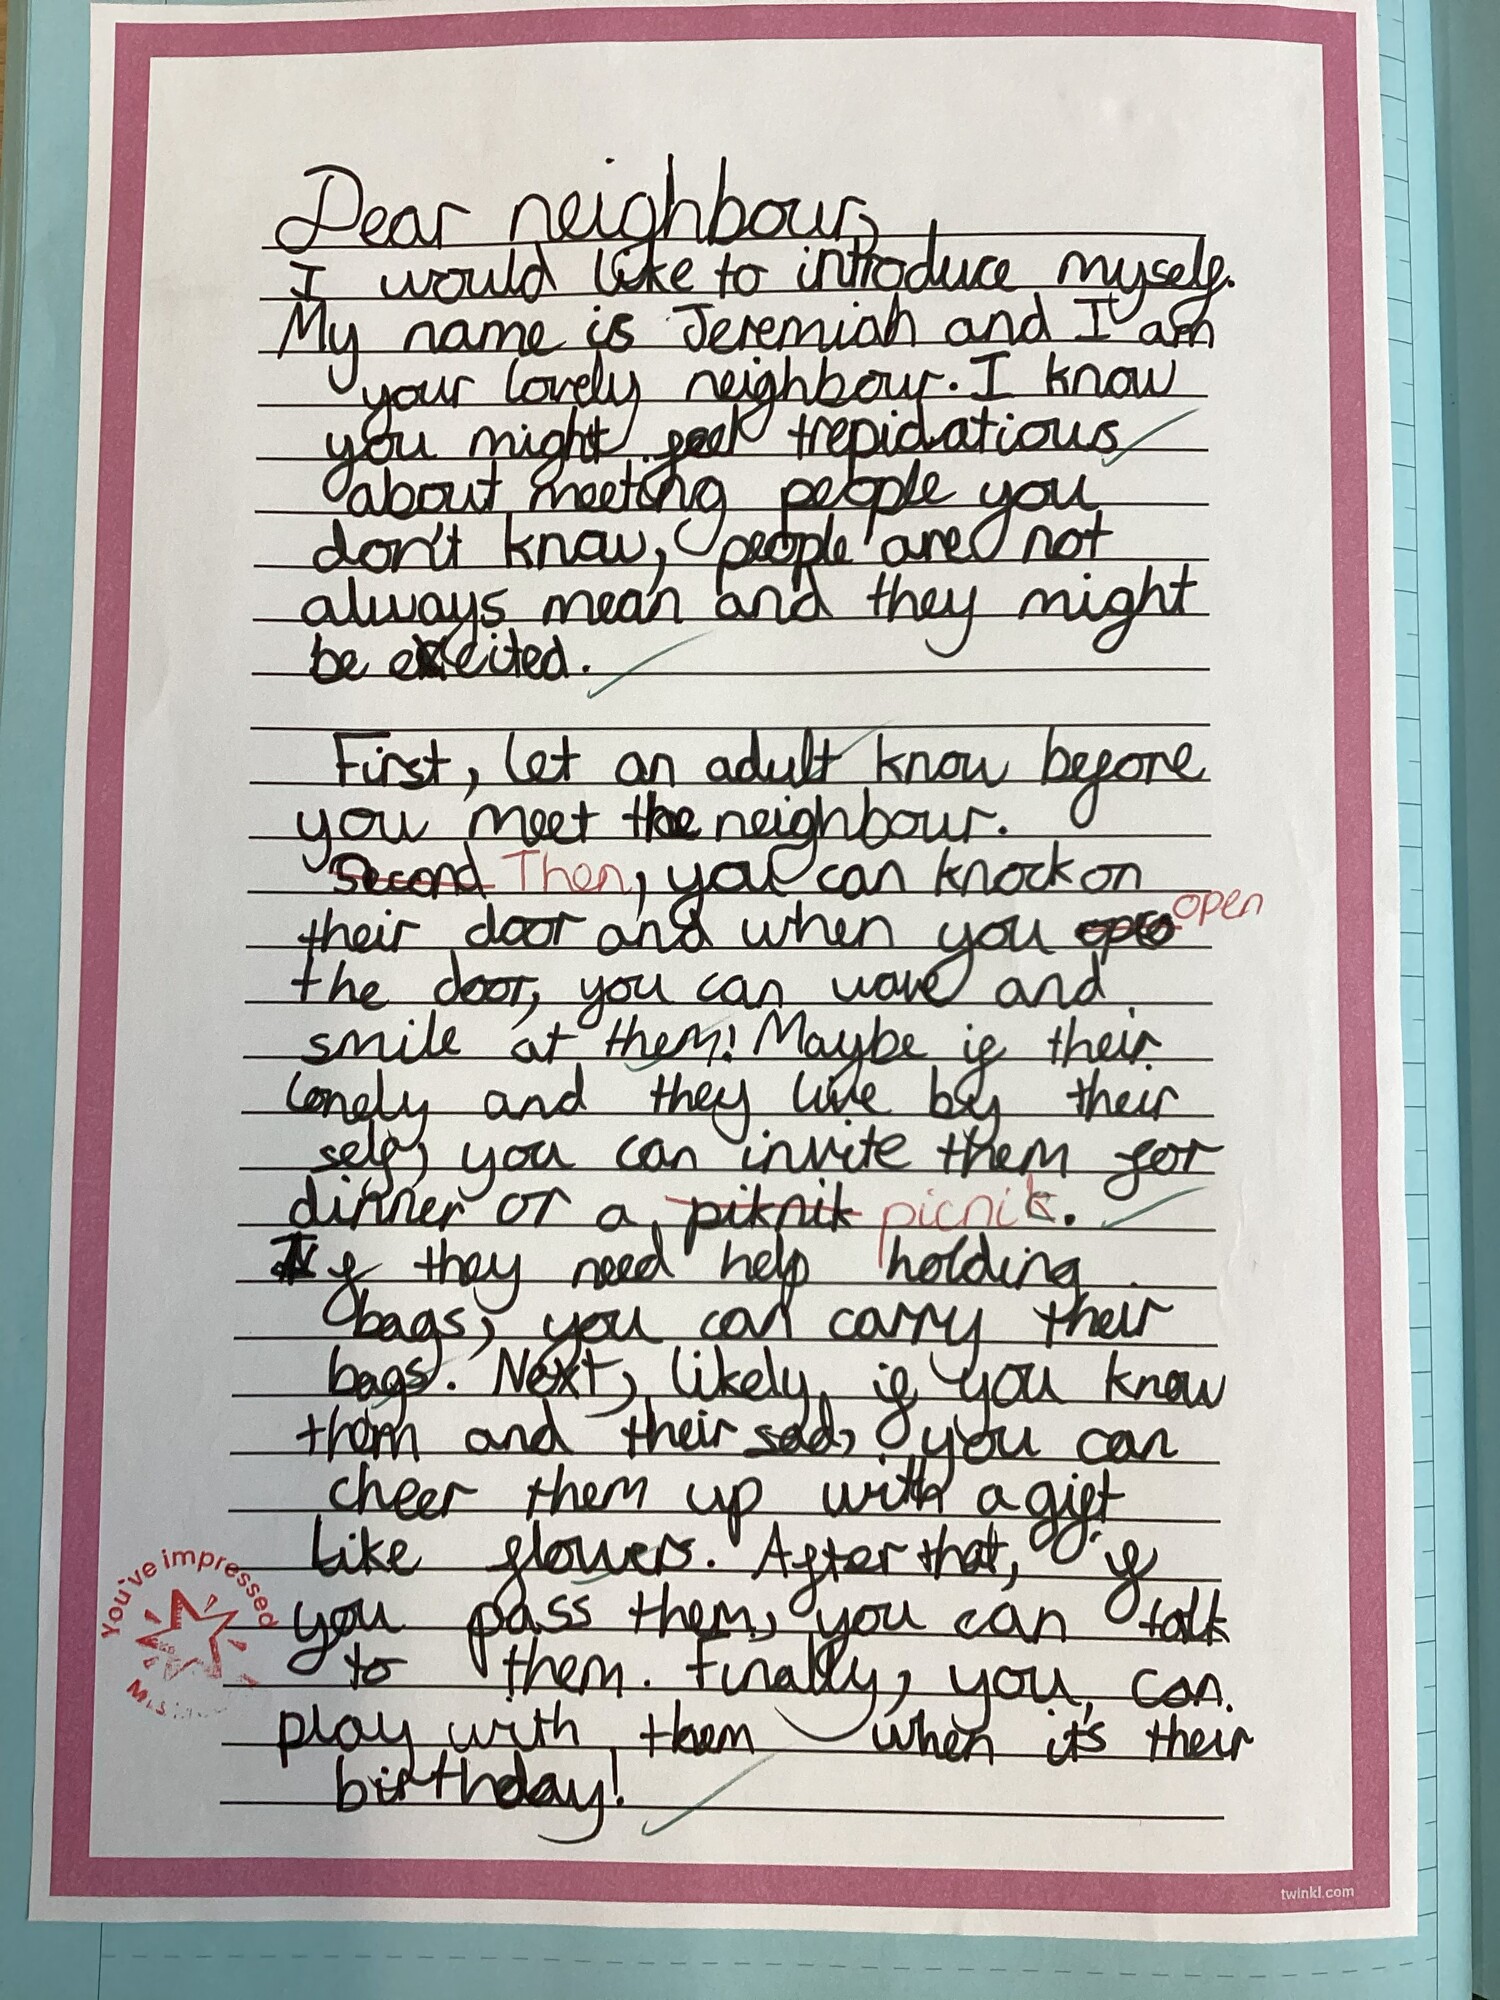 Dear neighbour,
I would like to introduce myself.
My name is Jeremiah and I am
your lovely neighbour. I know
you might feel trepidatious
about meeting people you
don't know, people are not
always mean and they might
be excited.
First, let an adult know before
you meet the neighbour.
Second Then, you can knock on
their door and when you open
the door, you can wave and
smile at them! Maybe if their
lonely and they live by their
self, you can invite them for
dinner or a piknik picnic.
If they need help holding
bags, you can carry their
bags. Next, likely, if you know
them and their sad, you can
cheer them up with a gift
like flowers. After that, if
you pass them, you can talk
to them. Finally, you can
play with them when it's their
birthday!
You've impressed
twinkl.com